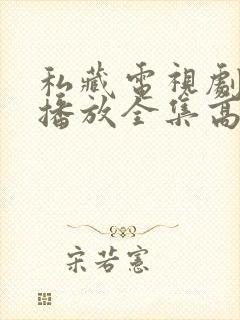 私藏電視劇
播放全集高
宋若憲